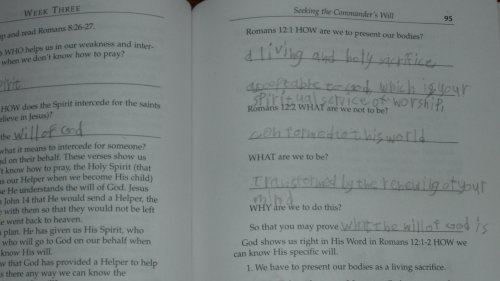 WEEK THREE
p and read Romans 8:26-27.
WHO helps us in our weakness and inter-
when we don't know how to pray?
HOW does the Spirit intercede for the saints
elieve in Jesus)?
the will of God
what it means to intercede for someone?
d on their behalf. These verses show us
't know how to pray, the Holy Spirit (that
s our Helper when we become His child)
e He understands the will of God. Jesus
John 14 that He would send a Helper, the
e with them so that they would not be left
e went back to heaven.
plan. He has given us His Spirit, who
who will go to God on our behalf when
know His will.
w that God has provided a Helper to help
s there any way we can know the
Seeking the Commander's Will 95
Romans 12:1 HOW are we to present our bodies?
a living and holy sacrifice
acceptable to God, which is your
spiritual service of worship,
Romans 12:2 WHAT are we not to be?
conformed to this world
WHAT are we to be?
Transformed by the renewing of your
mind
WHY are we to do this?
So that you may prove what the will of God is
God shows us right in His Word in Romans 12:1-2 HOW we
can know His specific will.
1. We have to present our bodies as a living sacrifice.